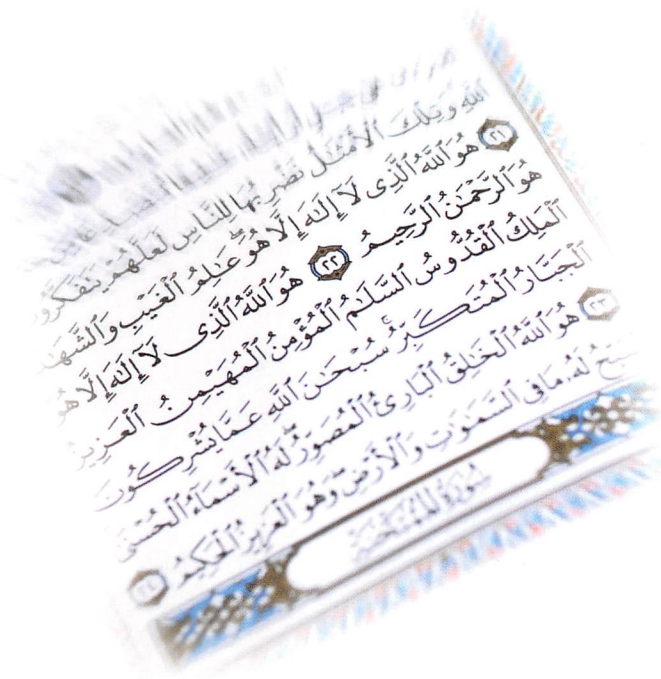 ٱللَّهِ وَتِلْكَ ٱلْأَمْثَٰلُ نَضْرِبُهَا لِلنَّاسِ لَعَلَّهُمْ يَتَفَكَّرُو
٢١ هُوَ ٱللَّهُ ٱلَّذِى لَآ إِلَٰهَ إِلَّا هُوَ ۖ عَٰلِمُ ٱلْغَيْبِ وَٱلشَّهَٰ
هُوَ ٱلرَّحْمَٰنُ ٱلرَّحِيمُ ٢٢ هُوَ ٱللَّهُ ٱلَّذِى لَآ إِلَٰهَ إِلَّا هُوَ
ٱلْمَلِكُ ٱلْقُدُّوسُ ٱلسَّلَٰمُ ٱلْمُؤْمِنُ ٱلْمُهَيْمِنُ ٱلْعَزِيزُ
ٱلْجَبَّارُ ٱلْمُتَكَبِّرُ ۚ سُبْحَٰنَ ٱللَّهِ عَمَّا يُشْرِكُونَ
٢٣ هُوَ ٱللَّهُ ٱلْخَٰلِقُ ٱلْبَارِئُ ٱلْمُصَوِّرُ ۖ لَهُ ٱلْأَسْمَآءُ ٱلْحُسْنَىٰ
يُسَبِّحُ لَهُۥ مَا فِى ٱلسَّمَٰوَٰتِ وَٱلْأَرْضِ ۖ وَهُوَ ٱلْعَزِيزُ ٱلْحَكِيمُ ٢٤
سُورَةُ ٱلْمُمْتَحَنَةِ